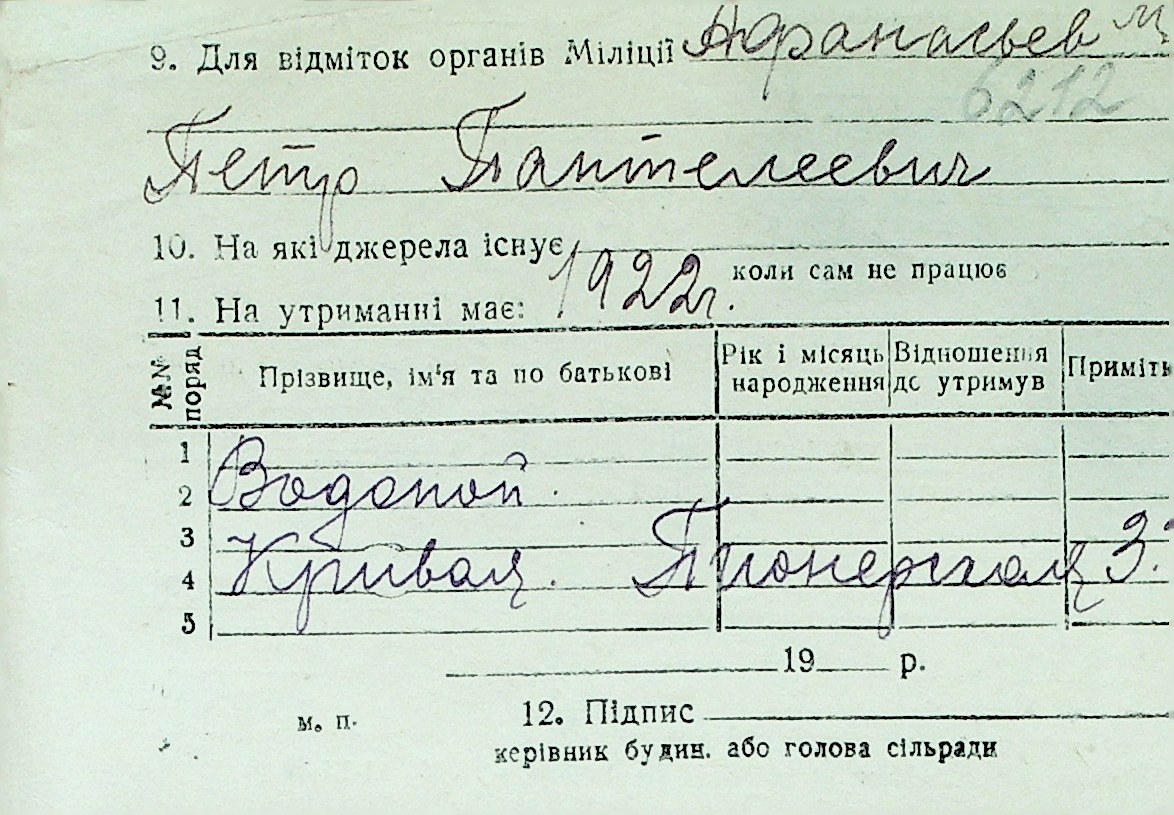 9. Для відміток органів Міліції Афанасьев м
6212
Петр Пантелеевич
10. На які джерела існує
коли сам не працює
11. На утриманні має: 1922г.
№№ поряд
Прізвище, ім'я та по батькові
Рік і місяць народження
Відношення до утримув
Приміть
1
2 Водопой.
3
4 Кривая. Пионерская 3.
5
19 р.
м. п. 12. Підпис
керівник будин. або голова сільради